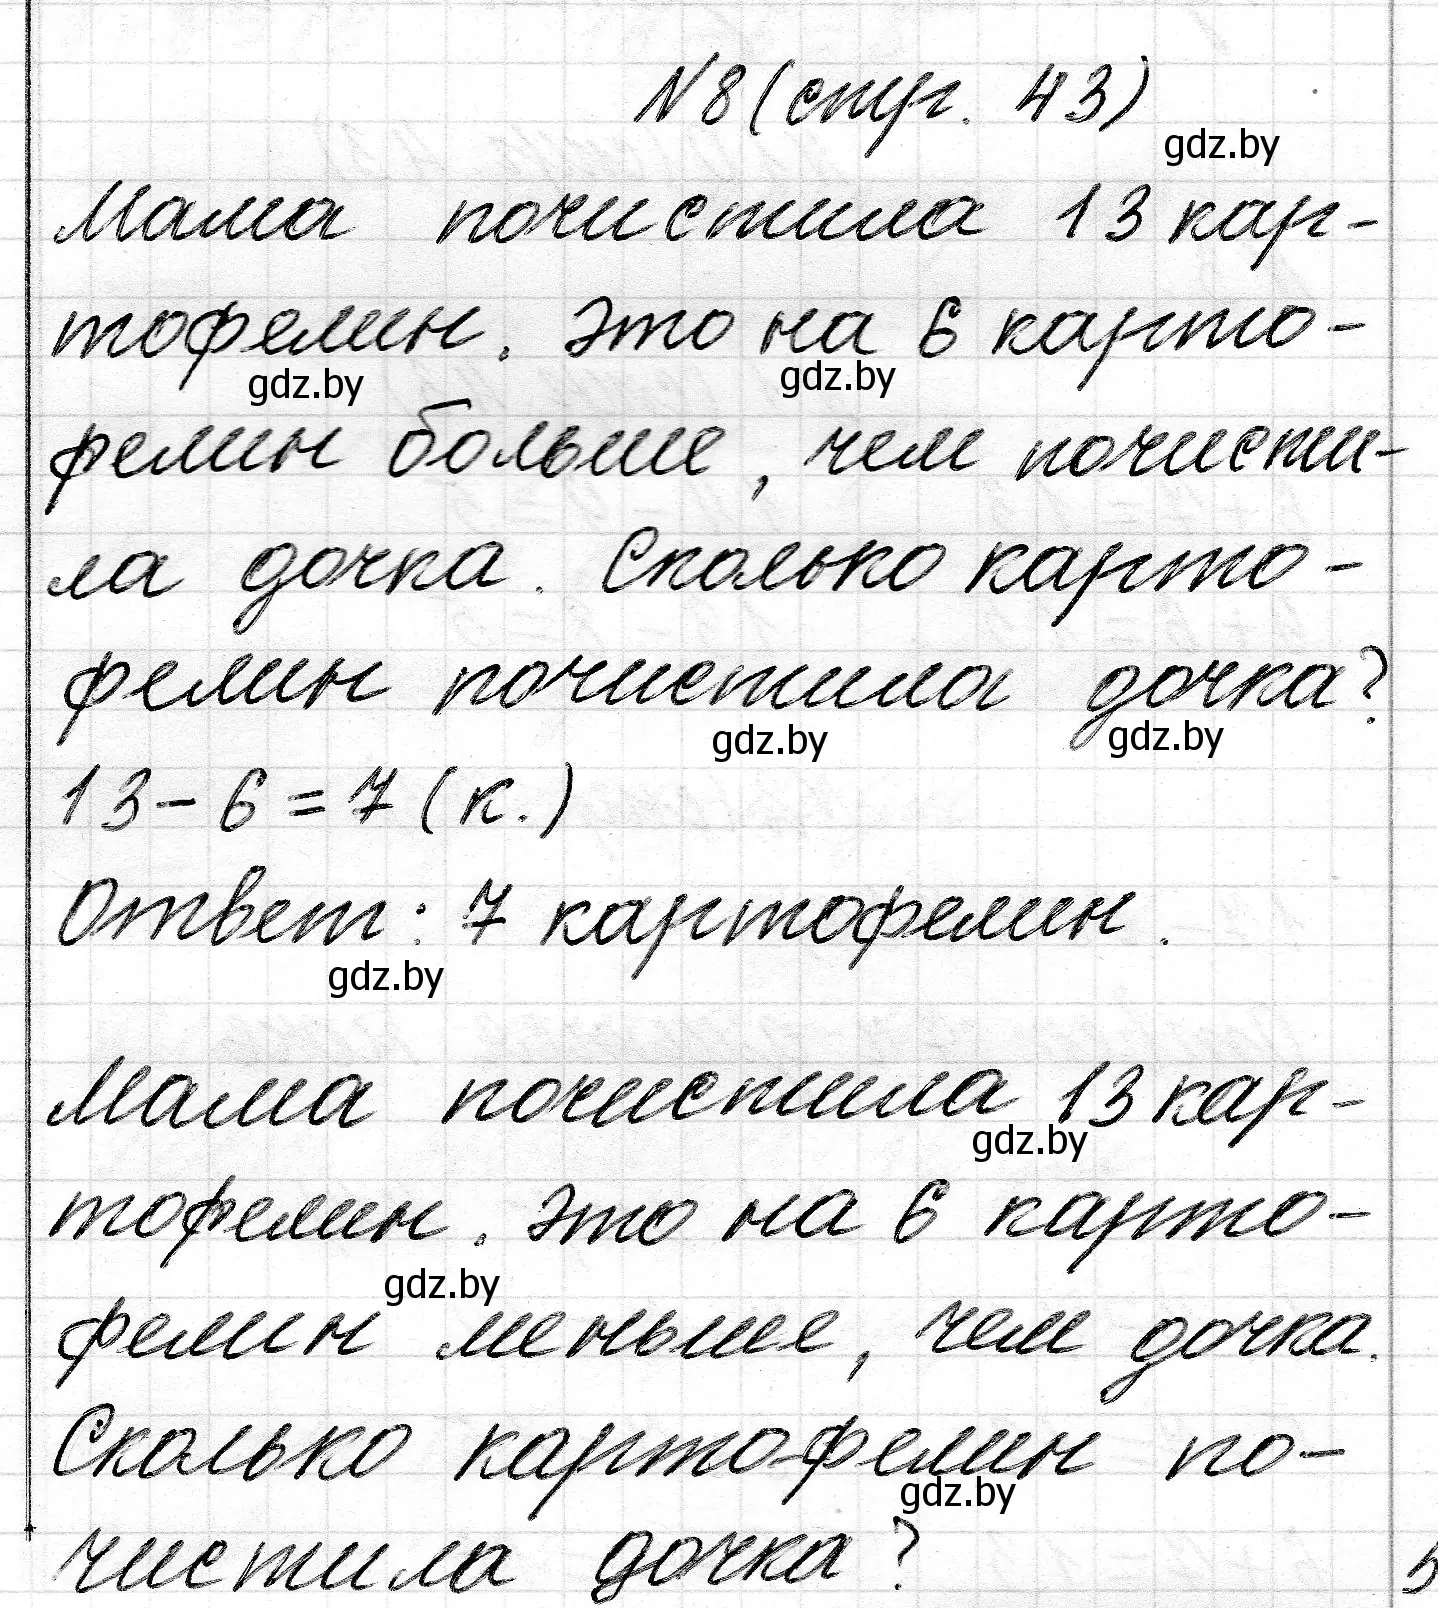 №8 (стр. 43)
gdz.by
Мама почистила 13 кар-
тофелин. Это на 6 карто-
gdz.by gdz.by
фелин больше, чем почисти-
ла дочка. Сколько карто-
фелин почистила дочка?
gdz.by gdz.by
13 - 6 = 7 (к.)
Ответ: 7 картофелин.
gdz.by
Мама почистила 13 кар-
gdz.by
тофелин. Это на 6 карто-
gdz.by
фелин меньше, чем дочка.
Сколько картофелин по-
gdz.by
чистила дочка?